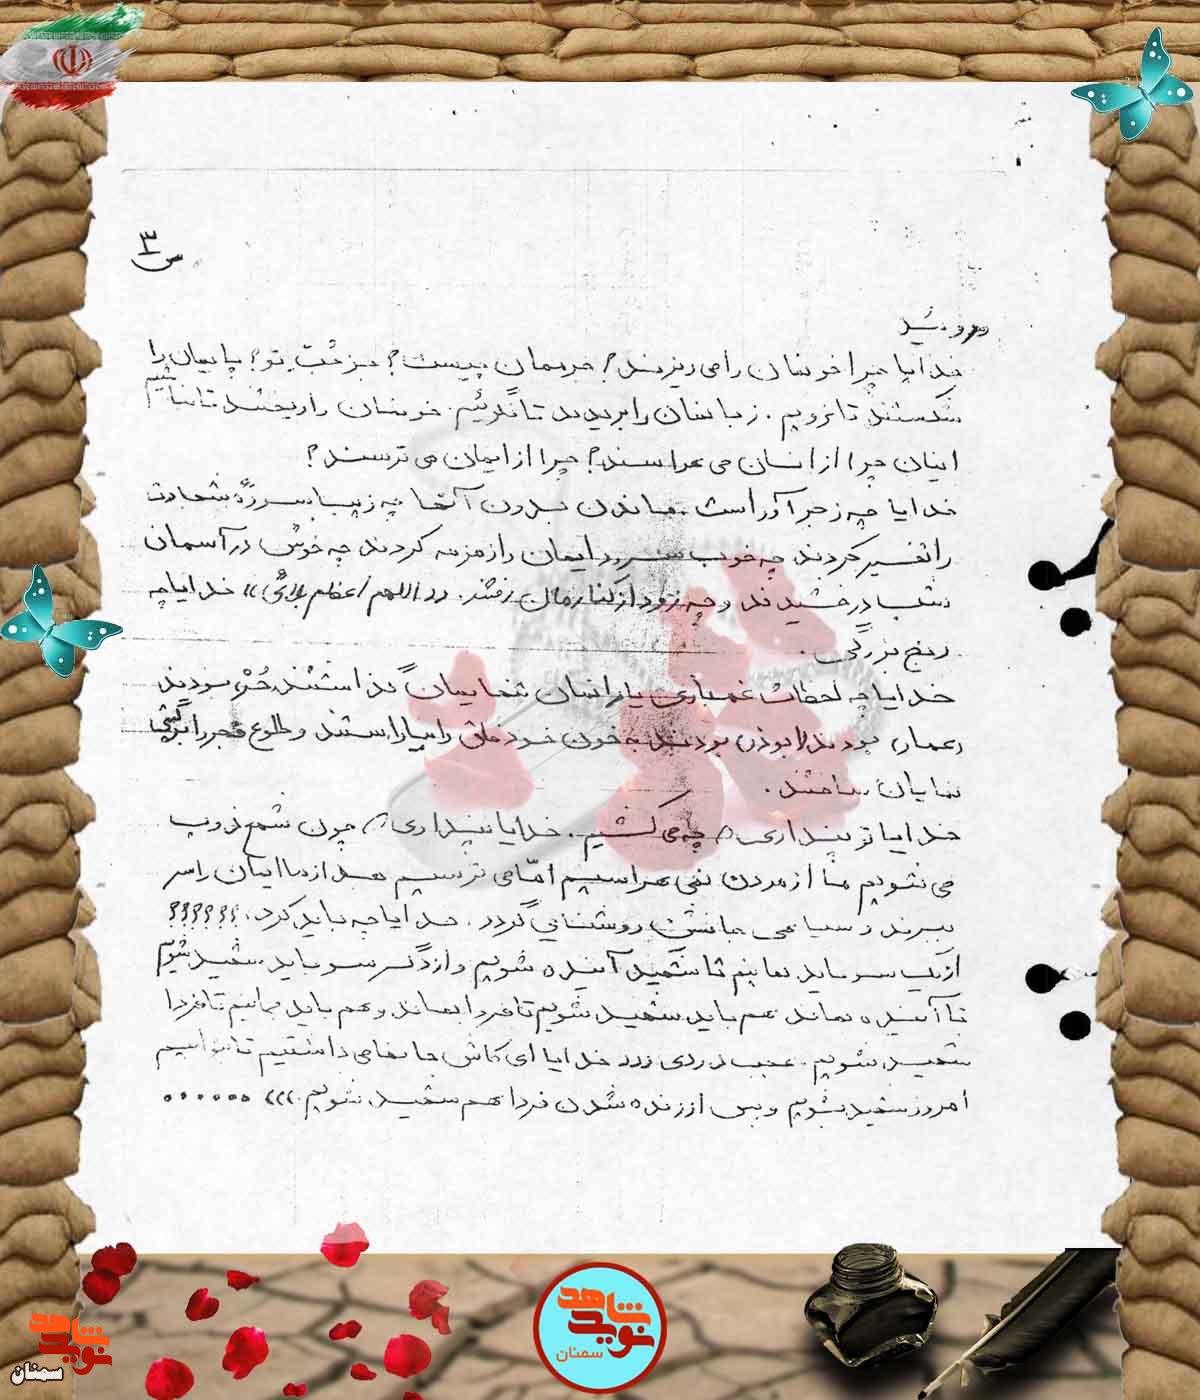 ص ۳
خدایا چرا خونمان را می ریزند؟ جرممان چیست؟ جز حُبّ تو؟ پایمان را
شکستند تا نرویم. زبانمان را بریدند تا نگوئیم. خونمان را ریختند تا نباشیم
اینان چرا از انسان می هراسند؟ چرا از ایمان می ترسند؟
خدایا چه زجرآور است. ماندن بدون آنها چه زیبا سرژهٔ شهادت
را تفسیر کردند چه خوب سرود ایمان را زمزمه کردند چه خوش در آسمان
شب درخشیدند و چه زود از کنارمان رفتند. «اللهم اعظم بلائی» خدایا چه
رنج بزرگی.
خدایا چه لحظات غمباری یارانمان تنهایمان گذاشتند، حُر بودند
عمار، بودند ابوذر، بودند به خون خود خلق را بیاراستند و طلوع فجر را
نمایان ساختند.
خدایا تو پنداری چه می کشیم. خدایا پنداری چون شمع ذوب
می شویم ما از مردن نمی هراسیم امّا می ترسیم بعد از ما ایمان را سر
ببرند و سیاهی جانشین روشنایی گردد. خدایا چه باید کرد؟؟؟؟؟؟
از یک سو باید بمانیم تا شهید آینده شویم و از دگر سو باید شهید شویم
تا آینده بماند هم باید شهید شویم تا فردا بماند و هم باید بمانیم تا فردا
شهید شویم. عجب دردی خدایا ای کاش جانهامی داشتیم تا بتوانیم
امروز شهید بشویم و پس از زنده شدن فردا هم شهید شویم.»»......
نوید شاهد
سمنان
نوید شاهد
سمنان